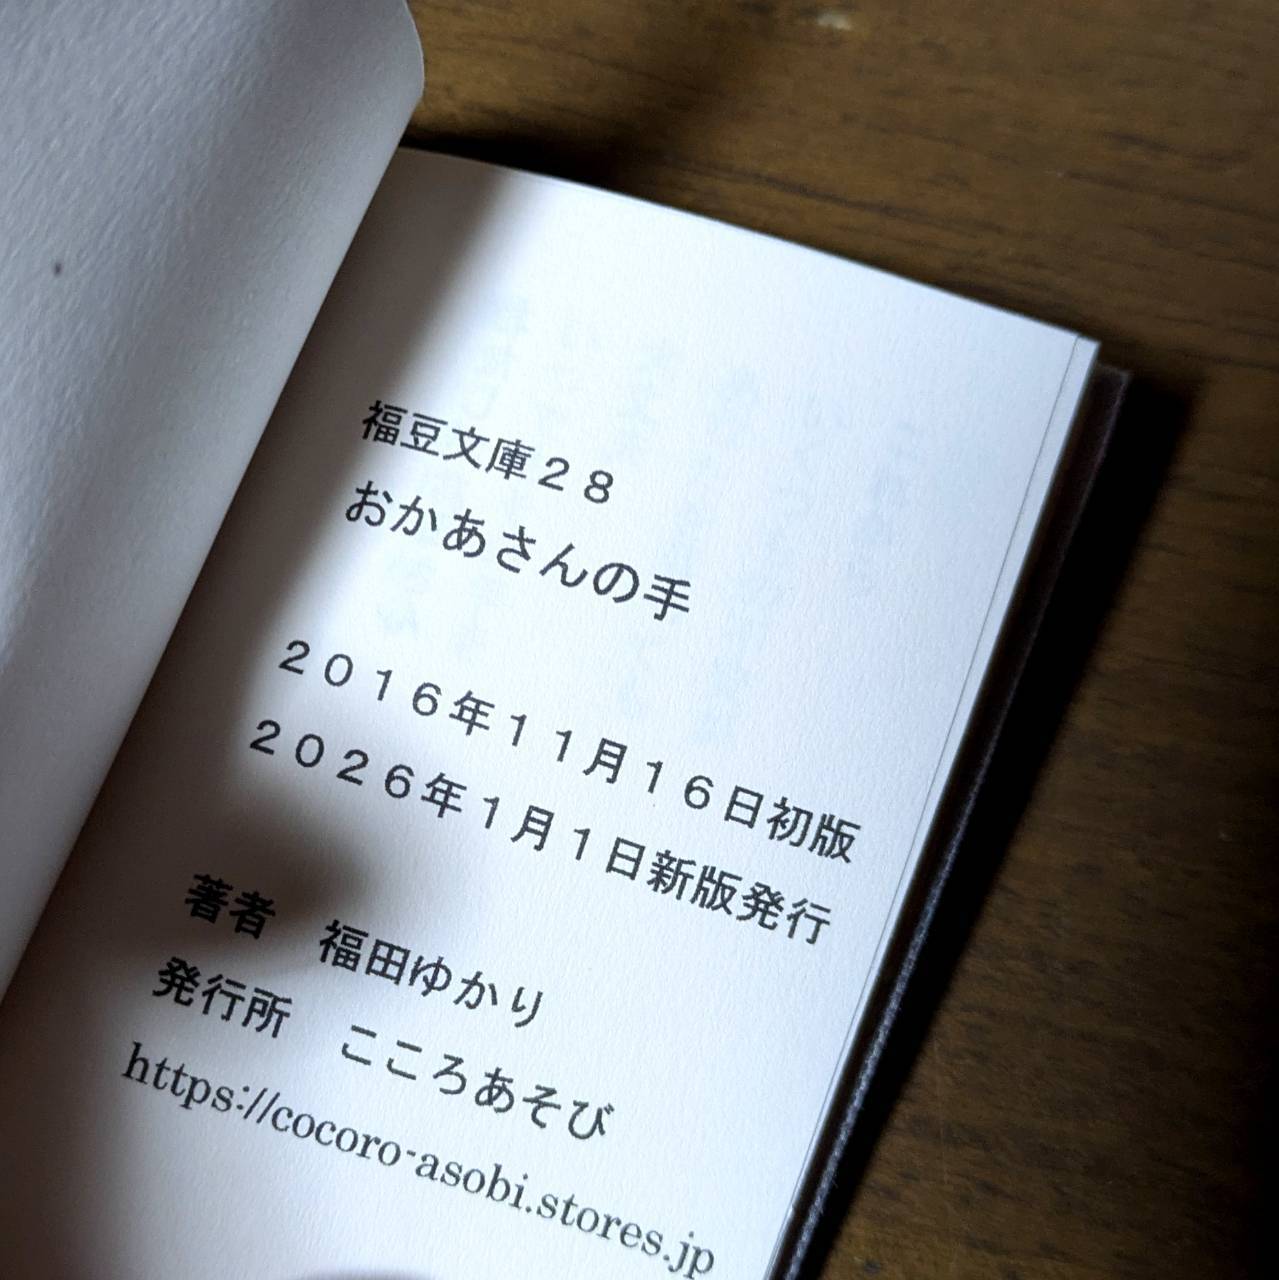 福豆文庫２８
おかあさんの手
２０１６年１１月１６日初版
２０２６年１月１日新版発行
著者　福田ゆかり
発行所　こころあそび
https://cocoro-asobi.stores.jp